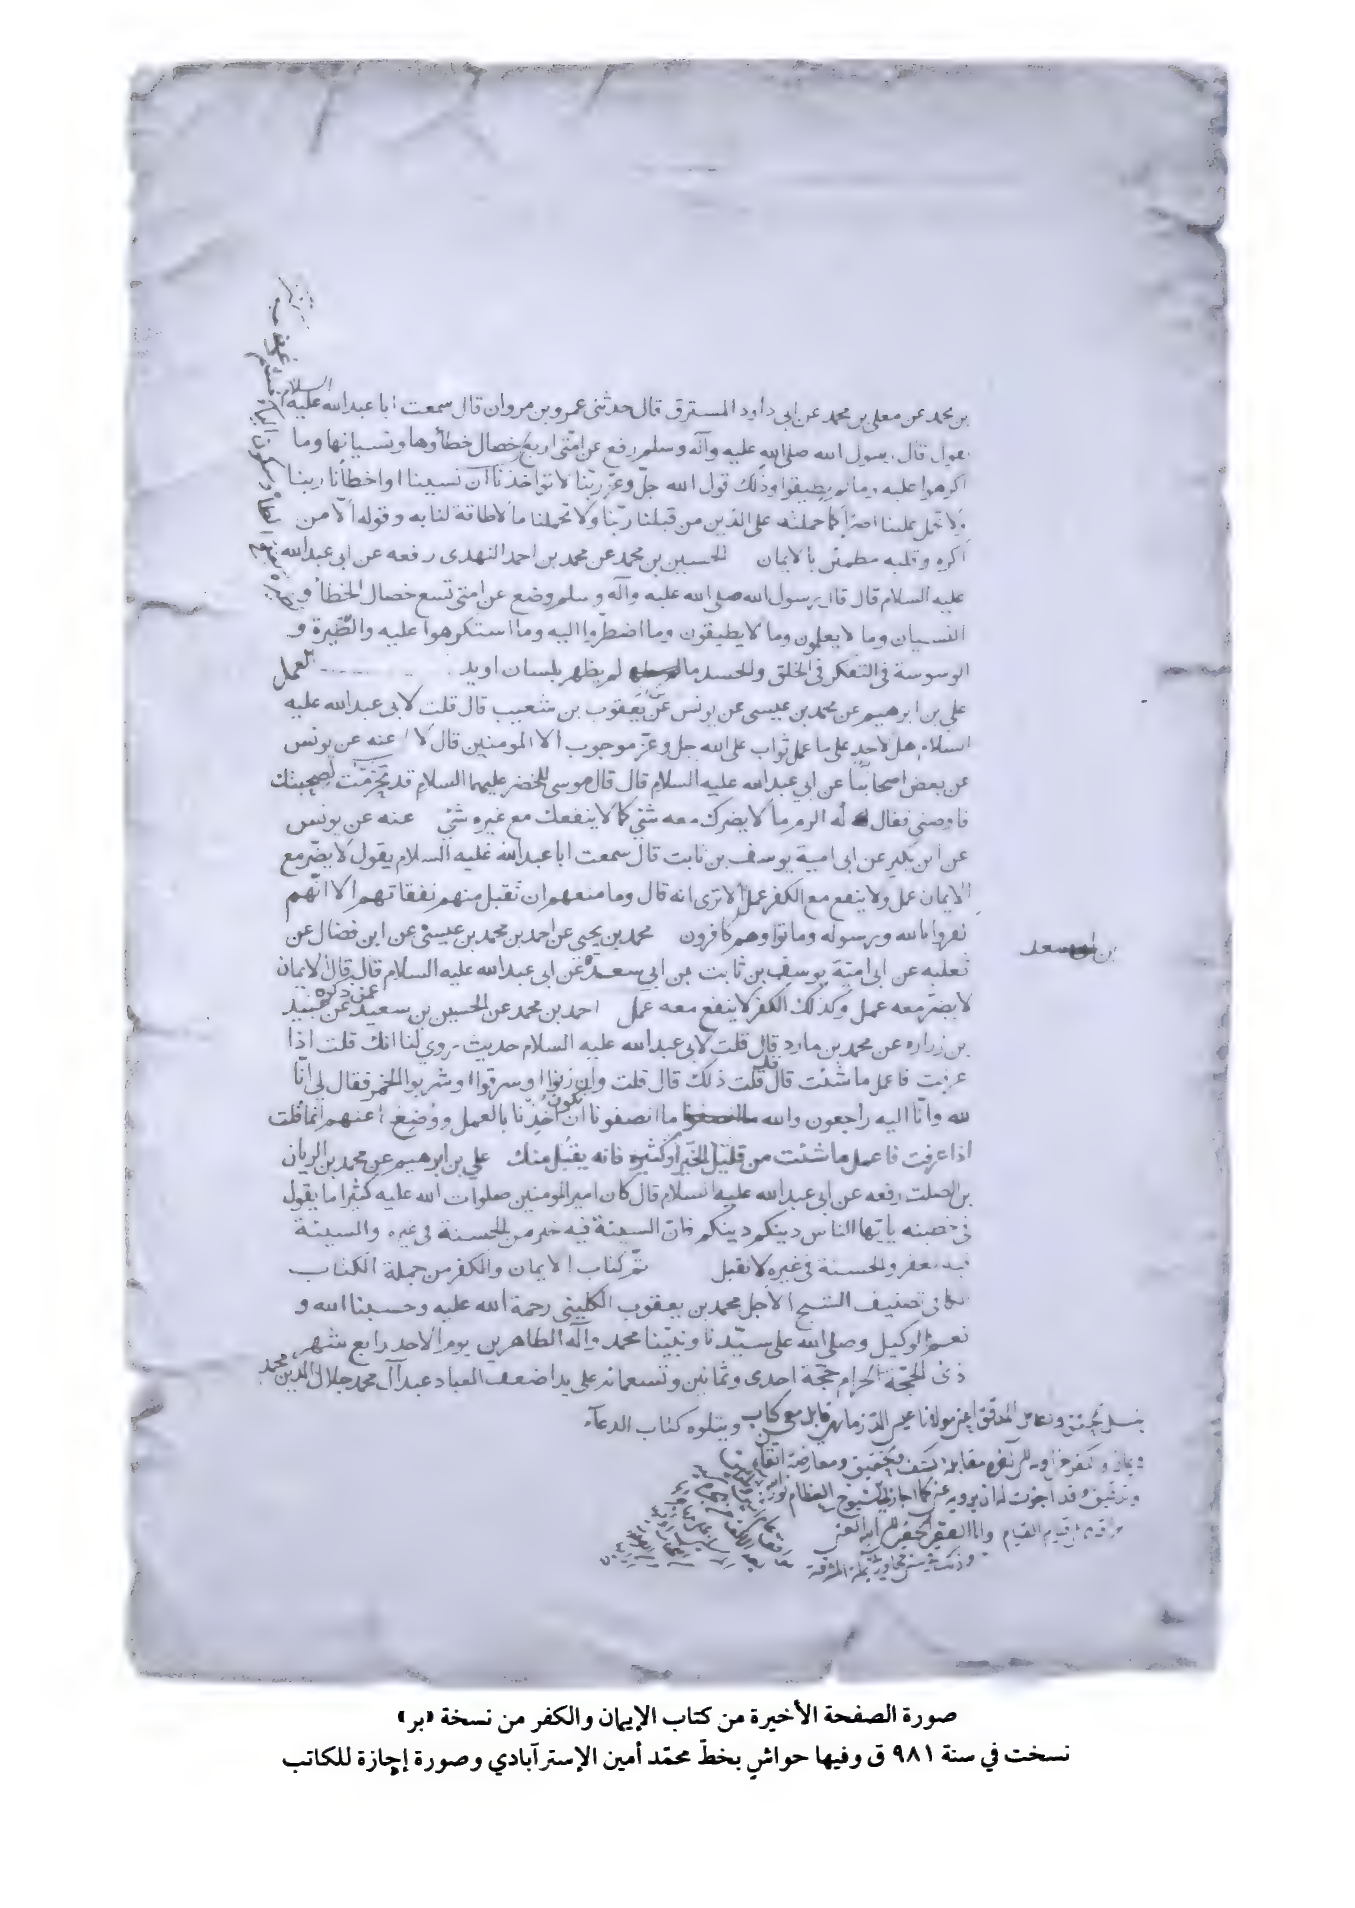 بن محمد عن معلى بن محمد عن ابى داود المسترق قال حدثنى عمرو بن مروان قال سمعت ابا عبدالله عليه السلام
يقول قال رسول الله صلى الله عليه وآله وسلم رفع عن امتى اربع خصال خطأوها ونسيانها وما
اكرهوا عليه وما لم يطيقوا وذلك قول الله جل وعز ربنا لا تؤاخذنا ان نسينا او اخطأنا ربنا
ولا تحمل علينا اصرا كما حملته على الذين من قبلنا ربنا ولا تحملنا ما لا طاقة لنا به وقوله الا من
اكره وقلبه مطمئن بالايمان الحسين بن محمد عن محمد بن احمد النهدى رفعه عن ابى عبدالله
عليه السلام قال قال رسول الله صلى الله عليه وآله وسلم وضع عن امتى تسع خصال الخطأ و
النسيان وما لا يعلمون وما لا يطيقون وما اضطروا اليه وما استكرهوا عليه والطيرة و
الوسوسة فى التفكر فى الخلق والحسد ما لم يظهر بلسان او يد
على بن ابرهيم عن محمد بن عيسى عن يونس عن يعقوب بن شعيب قال قلت لابى عبدالله عليه
السلام هل لاحد على ما عمل ثواب على الله جل وعز موجوب الا المومنين قال لا عنه عن يونس
عن بعض اصحابنا عن ابى عبدالله عليه السلام قال قال موسى للخضر عليهما السلام قد تحرمت لصحبتك
فاوصنى فقال له الزم ما لا يضرك معه شئ كما لا ينفعك مع غيره شئ عنه عن يونس
عن ابن بكير عن ابى امية يوسف بن ثابت قال سمعت ابا عبدالله عليه السلام يقول لا يضر مع
الايمان عمل ولا ينفع مع الكفر عمل الا ترى انه قال وما منعهم ان تقبل منهم نفقاتهم الا انهم
كفروا بالله وبرسوله وماتوا وهم كافرون محمد بن يحيى عن احمد بن محمد بن عيسى عن ابن فضال عن
ثعلبه عن ابى امية يوسف بن ثابت بن ابى سعدة عن ابى عبدالله عليه السلام قال قال الايمان
لا يضر معه عمل وكذلك الكفر لا ينفع معه عمل احمد بن محمد عن الحسين بن سعيد عمن ذكره عن عبيد
بن زراره عن محمد بن مارد قال قلت لابى عبدالله عليه السلام حديث روى لنا انك قلت اذا
عرفت فاعمل ما شئت قال قد قلت ذلك قال قلت وان زنوا او سرقوا او شربوا الخمر فقال لى انا
لله وانا اليه راجعون والله ما انصفونا ان نكون اخذنا بالعمل ووضع عنهم انما قلت
اذا عرفت فاعمل ما شئت من قليل الخير او كثيره فانه يقبل منك على بن ابرهيم عن محمد بن الريان
بن الصلت رفعه عن ابى عبدالله عليه السلام قال كان امير المومنين صلوات الله عليه كثيرا ما يقول
فى خطبته يا ايها الناس دينكم دينكم فان السيئة فيه خير من الحسنة فى غيره والسيئة
فيه تغفر والحسنة فى غيره لا تقبل تم كتاب الايمان والكفر من جملة الكتاب
الكافى تصنيف الشيخ الاجل محمد بن يعقوب الكلينى رحمة الله عليه وحسبنا الله و
نعم الوكيل وصلى الله على سيدنا ونبينا محمد وآله الطاهرين يوم الاحد رابع شهر
ذى الحجة الحرام حجة احدى وثمانين وتسعمائه على يد اضعف العباد عبد آل محمد جلال الدين محمد
ويتلوه كتاب الدعاء
صورة الصفحة الأخيرة من كتاب الإيمان والكفر من نسخة «بر»
نسخت في سنة ٩٨١ ق وفيها حواشٍ بخطّ محمّد أمين الإسترآبادي وصورة إجازة للكاتب